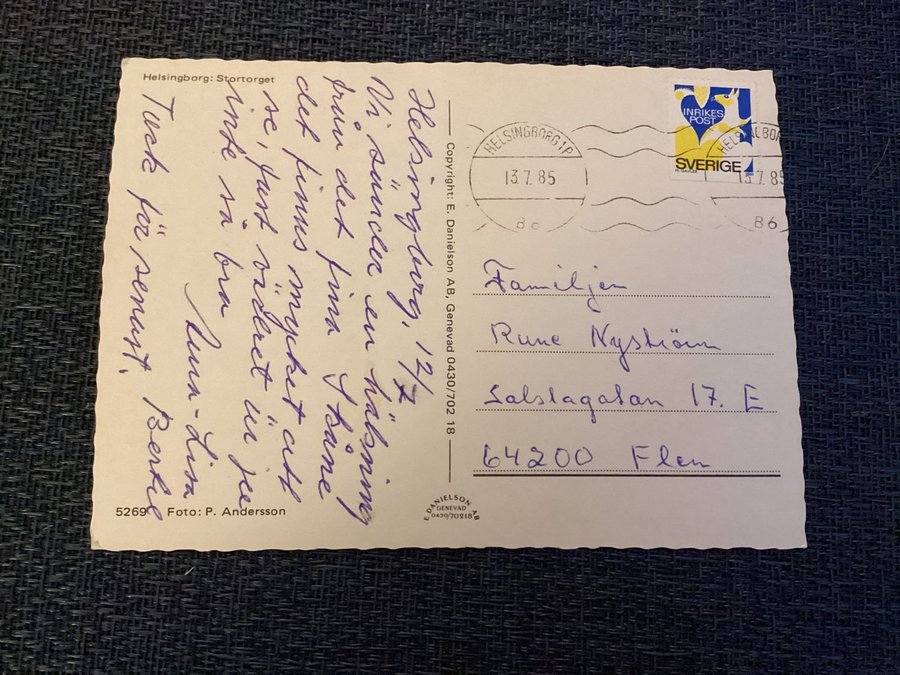 Helsingborg: Stortorget
Helsingborg, 12/7
Vi sänder en hälsning
från det fina Skåne
det finns mycket att
se, fast vädret är ju
inte så bra
Anna-Lisa Bertil
Tack för senast.
5269 Foto: P. Andersson
Copyright: E. Danielson AB, Genevad 0430/702 18
E. DANIELSON AB
GENEVAD
0430/70218
HELSINGBORG 1 P
13.7.85
86
INRIKES
POST
SVERIGE
HELSINGBOR
13.7.85
86
Familjen
Rune Nyström
Salstagatan 17. E
64200 Flen